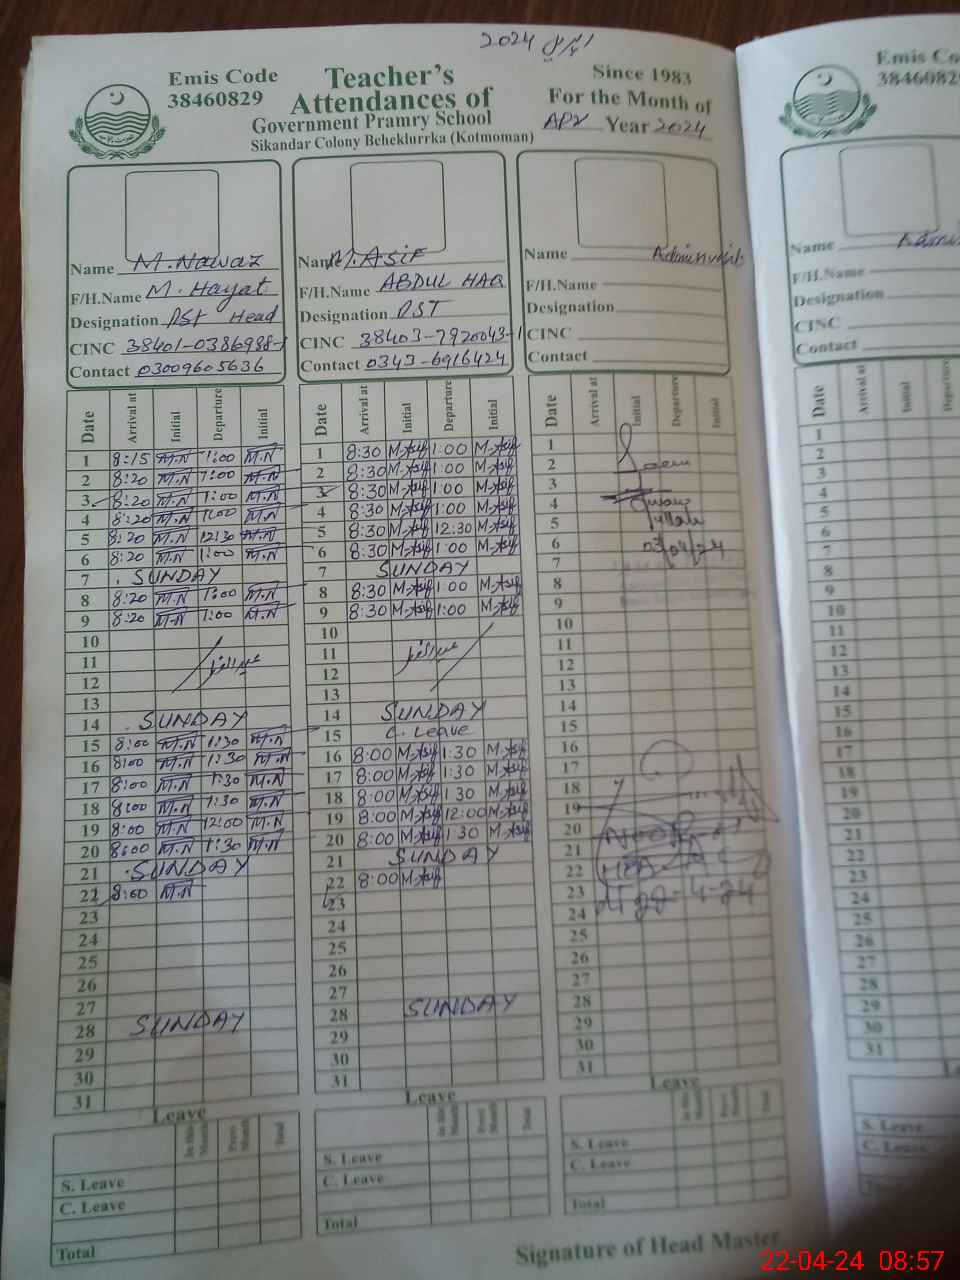 2024 اپریل
Emis Code
38460829
Teacher's
Attendances of
Government Pramry School
Sikandar Colony Beheklurrka (Kotmoman)
Since 1983
For the Month of
Apr Year 2024
Name M.Nawaz
F/H.Name M. Hayat
Designation PST Head
CINC 38401-0386988-1
Contact 03009605636
Date Arrival at Initial Departure Initial
1 8:15 M.N 1:00 M.N
2 8:20 M.N 1:00 M.N
3 8:20 M.N 1:00 M.N
4 8:20 M.N 1:00 M.N
5 8:20 M.N 12:30 M.N
6 8:20 M.N 1:00 M.N
7 SUNDAY
8 8:20 M.N 1:00 M.N
9 8:20 M.N 1:00 M.N
10
11 عیدالفطر
12
13
14 SUNDAY
15 8:00 M.N 1:30 M.N
16 8:00 M.N 1:30 M.N
17 8:00 M.N 1:30 M.N
18 8:00 M.N 1:30 M.N
19 8:00 M.N 12:00 M.N
20 8:00 M.N 1:30 M.N
21 SUNDAY
22 8:00 M.N
23
24
25
26
27
28 SUNDAY
29
30
31
Leave
In this Month Prevs Month Total
S. Leave
C. Leave
Total
Name M.Asif
F/H.Name ABDUL HAQ
Designation PST
CINC 38403-7920043-1
Contact 0343-6916424
Date Arrival at Initial Departure Initial
1 8:30 M.Asif 1:00 M.Asif
2 8:30 M.Asif 1:00 M.Asif
3 8:30 M.Asif 1:00 M.Asif
4 8:30 M.Asif 1:00 M.Asif
5 8:30 M.Asif 12:30 M.Asif
6 8:30 M.Asif 1:00 M.Asif
7 SUNDAY
8 8:30 M.Asif 1:00 M.Asif
9 8:30 M.Asif 1:00 M.Asif
10
11 عیدالفطر
12
13
14 SUNDAY
15 C. Leave
16 8:00 M.Asif 1:30 M.Asif
17 8:00 M.Asif 1:30 M.Asif
18 8:00 M.Asif 1:30 M.Asif
19 8:00 M.Asif 12:00 M.Asif
20 8:00 M.Asif 1:30 M.Asif
21 SUNDAY
22 8:00 M.Asif
23
24
25
26
27
28 SUNDAY
29
30
31
Leave
In this Month Prevs Month Total
S. Leave
C. Leave
Total
Name
F/H.Name
Designation
CINC
Contact
Date Arrival at Initial Departure Initial
1
2
3
4
5
6 03/04/24
7
8
9
10
11
12
13
14
15
16
17
18
19
20
21
22
23
24
25
26
27
28
29
30
31
Leave
In this Month Prevs Month Total
S. Leave
C. Leave
Total
Signature of Head Master
Emis Co
38460829
Name
F/H.Name
Designation
CINC
Contact
Date Arrival at Initial Departure
1
2
3
4
5
6
7
8
9
10
11
12
13
14
15
16
17
18
19
20
21
22
23
24
25
26
27
28
29
30
31
S. Leave
C. Leave
22-04-24 08:57